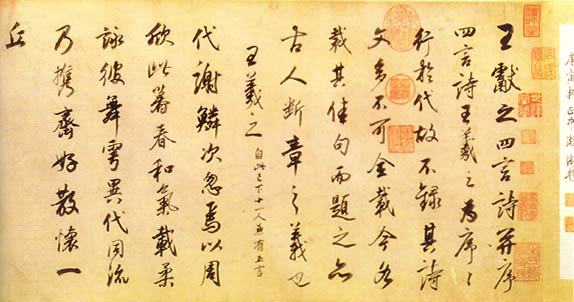 王獻之四言詩并序
四言詩王羲之為序〻
行於代故不錄其詩
文多不可全載今各
裁其佳句而題之亦
古人斷章之義也
王羲之 自此已下十一人並有五言
代謝鱗次忽焉以周
欣此暮春和氣載柔
詠彼舞雩異代同流
乃攜齊好散懷一
丘